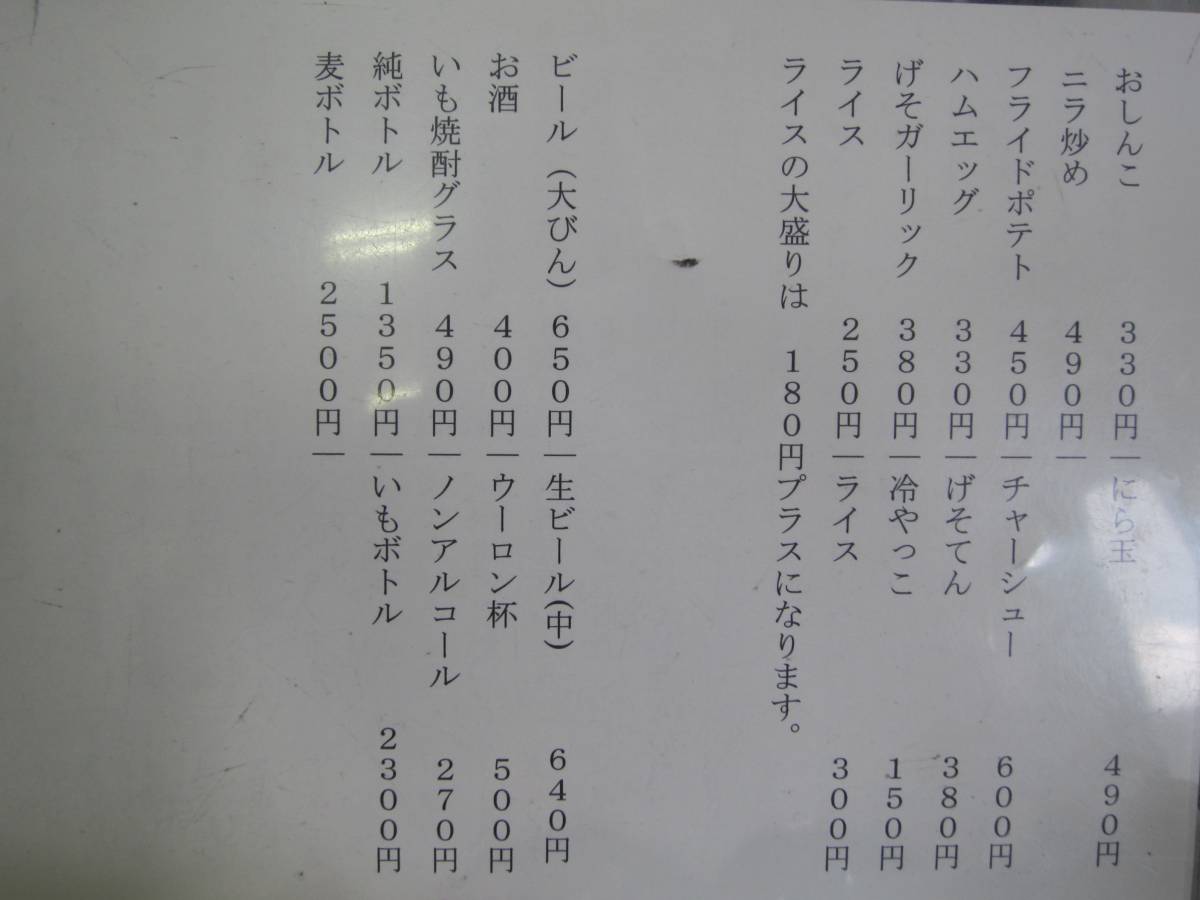 おしんこ ３３０円｜にら玉 ４９０円
ニラ炒め ４９０円｜
フライドポテト ４５０円｜チャーシュー ６００円
ハムエッグ ３３０円｜げそてん ３８０円
げそガーリック ３８０円｜冷やっこ １５０円
ライス ２５０円｜ライス ３００円
ライスの大盛りは １８０円プラスになります。
ビール（大びん）６５０円｜生ビール(中) ６４０円
お酒 ４００円｜ウーロン杯 ５００円
いも焼酎グラス ４９０円｜ノンアルコール ２７０円
純ボトル １３５０円｜いもボトル ２３００円
麦ボトル ２５００円｜